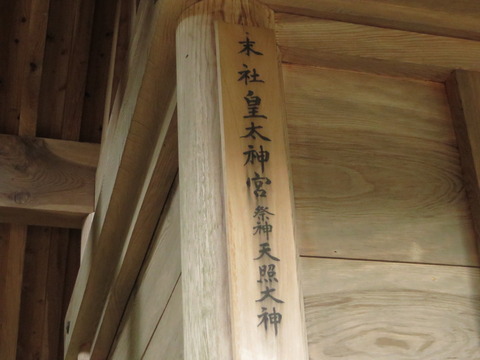 末社皇太神宮祭神天照大神